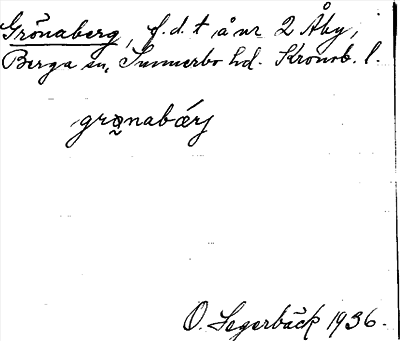 Grönaberg, f.d. t å nr 2 Åby,
Berga sn, Sunnerbo hd. Kronob. l.
O. Segerbäck 1936.